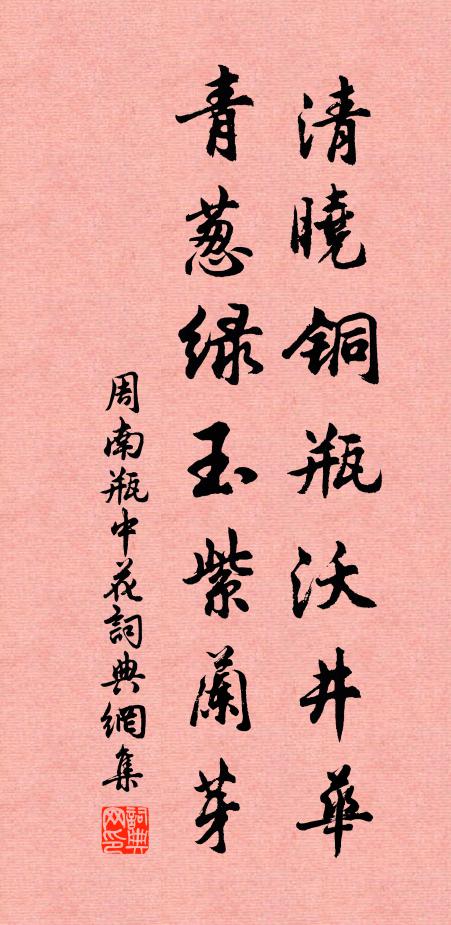 清曉铜瓶沃井華
青葱绿玉紫蘭芽
周南瓶中花詞典網集
詞典网印